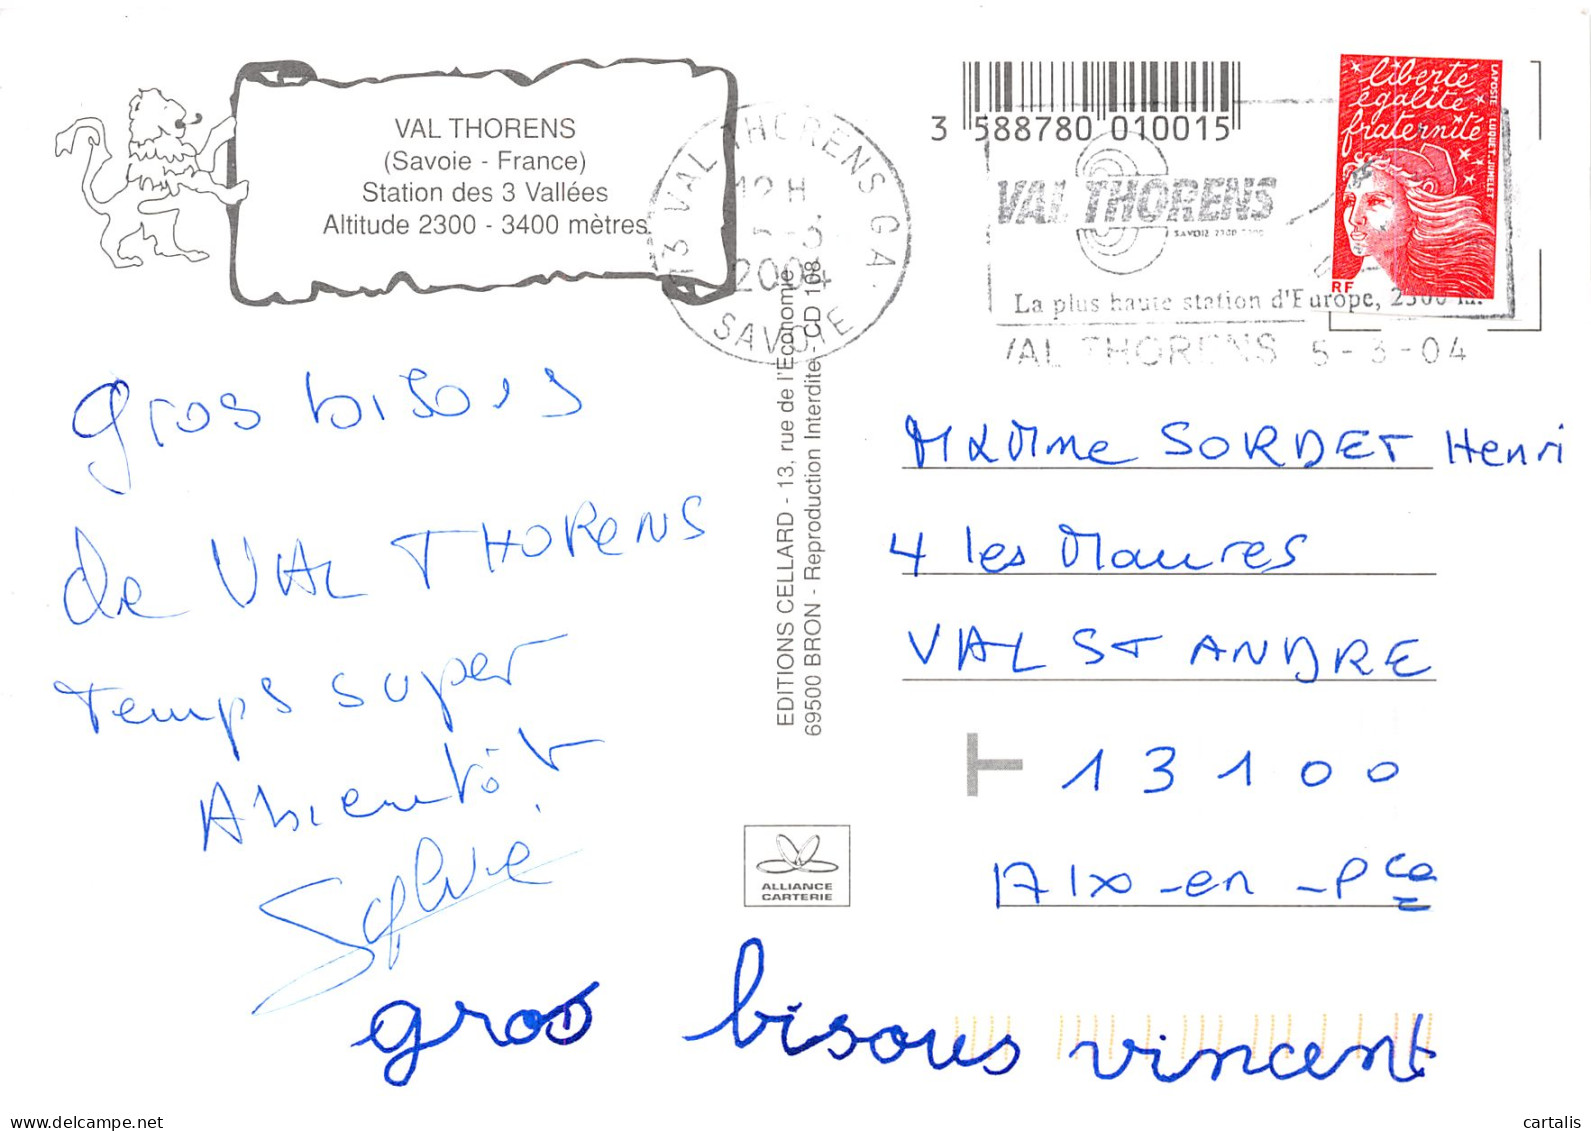 VAL THORENS
(Savoie - France)
Station des 3 Vallées
Altitude 2300 - 3400 mètres
73 VAL THORENS G A
12 H
5-3
2004
SAVOIE
3 588780 010015
VAL THORENS
SAVOIE 2300
La plus haute station d'Europe, 2300 m.
VAL THORENS 5-3-04
liberté
égalité
fraternité
LAPOSTE LUQUET.JUMELET
RF
Gros bisous
de VAL THORENS
Temps super
A bientôt
Sylvie
EDITIONS CELLARD - 13, rue de l'Economie
69500 BRON - Reproduction Interdite - CD 108
MADAme SORDET Henri
4 les Maures
VAL ST ANDRE
T 13100
AIX-en-Pce
ALLIANCE
CARTERIE
gros bisous vincent
www.delcampe.net
cartalis